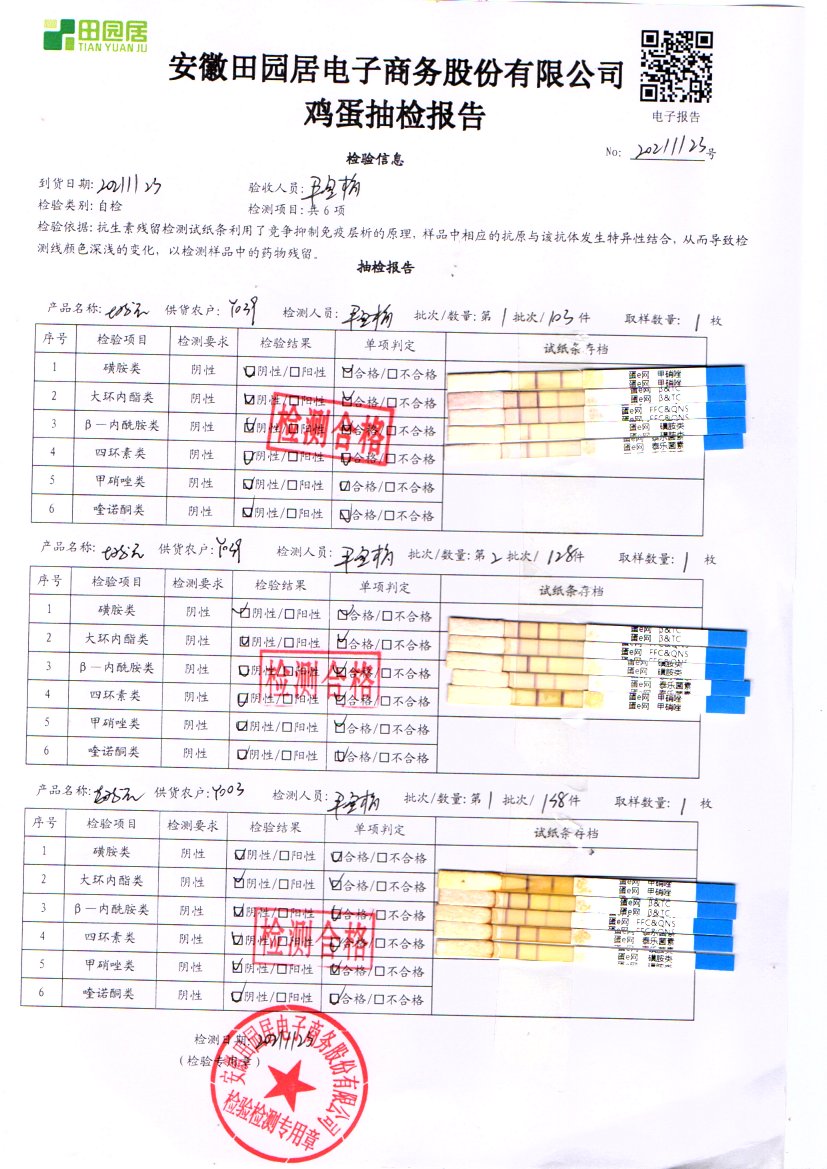 田园居
TIAN YUAN JU
安徽田园居电子商务股份有限公司
鸡蛋抽检报告
电子报告
No: 20211123号
检验信息
到货日期: 20211123 验收人员:
检验类别: 自检 检测项目: 共6项
检验依据: 抗生素残留检测试纸条利用了竞争抑制免疫层析的原理, 样品中相应的抗原与该抗体发生特异性结合, 从而导致检
测线颜色深浅的变化, 以检测样品中的药物残留。
抽检报告
产品名称: 供货农户: Y039 检测人员: 批次/数量: 第1批次/103件 取样数量: 1枚
序号 检验项目 检测要求 检验结果 单项判定 试纸条存档
1 磺胺类 阴性 ☑阴性/□阳性 ☑合格/□不合格
2 大环内酯类 阴性 ☑阴性/□阳性 ☑合格/□不合格
3 β－内酰胺类 阴性 ☑阴性/□阳性 ☑合格/□不合格
4 四环素类 阴性 ☑阴性/□阳性 ☑合格/□不合格
5 甲硝唑类 阴性 ☑阴性/□阳性 ☑合格/□不合格
6 喹诺酮类 阴性 ☑阴性/□阳性 ☑合格/□不合格
检测合格
蛋e网 甲硝唑
蛋e网 甲硝唑
蛋e网 β&TC
蛋e网 β&TC
蛋e网 FFC&QNS
蛋e网 磺胺类
蛋e网 泰乐菌素
产品名称: 供货农户: Y039 检测人员: 批次/数量: 第2批次/128件 取样数量: 1枚
序号 检验项目 检测要求 检验结果 单项判定 试纸条存档
1 磺胺类 阴性 ☑阴性/□阳性 ☑合格/□不合格
2 大环内酯类 阴性 ☑阴性/□阳性 ☑合格/□不合格
3 β－内酰胺类 阴性 ☑阴性/□阳性 ☑合格/□不合格
4 四环素类 阴性 ☑阴性/□阳性 ☑合格/□不合格
5 甲硝唑类 阴性 ☑阴性/□阳性 ☑合格/□不合格
6 喹诺酮类 阴性 ☑阴性/□阳性 ☑合格/□不合格
检测合格
蛋e网 β&TC
蛋e网 FFC&QNS
蛋e网 磺胺类
蛋e网 磺胺类
蛋e网 泰乐菌素
蛋e网 甲硝唑
产品名称: 供货农户: Y003 检测人员: 批次/数量: 第1批次/148件 取样数量: 1枚
序号 检验项目 检测要求 检验结果 单项判定 试纸条存档
1 磺胺类 阴性 ☑阴性/□阳性 ☑合格/□不合格
2 大环内酯类 阴性 ☑阴性/□阳性 ☑合格/□不合格
3 β－内酰胺类 阴性 ☑阴性/□阳性 ☑合格/□不合格
4 四环素类 阴性 ☑阴性/□阳性 ☑合格/□不合格
5 甲硝唑类 阴性 ☑阴性/□阳性 ☑合格/□不合格
6 喹诺酮类 阴性 ☑阴性/□阳性 ☑合格/□不合格
检测合格
蛋e网 甲硝唑
蛋e网 甲硝唑
蛋e网 β&TC
蛋e网 β&TC
蛋e网 FFC&QNS
蛋e网 泰乐菌素
蛋e网 磺胺类
检测日期: 20211123
(检验专用章)
安徽田园居电子商务股份有限公司
检验检测专用章